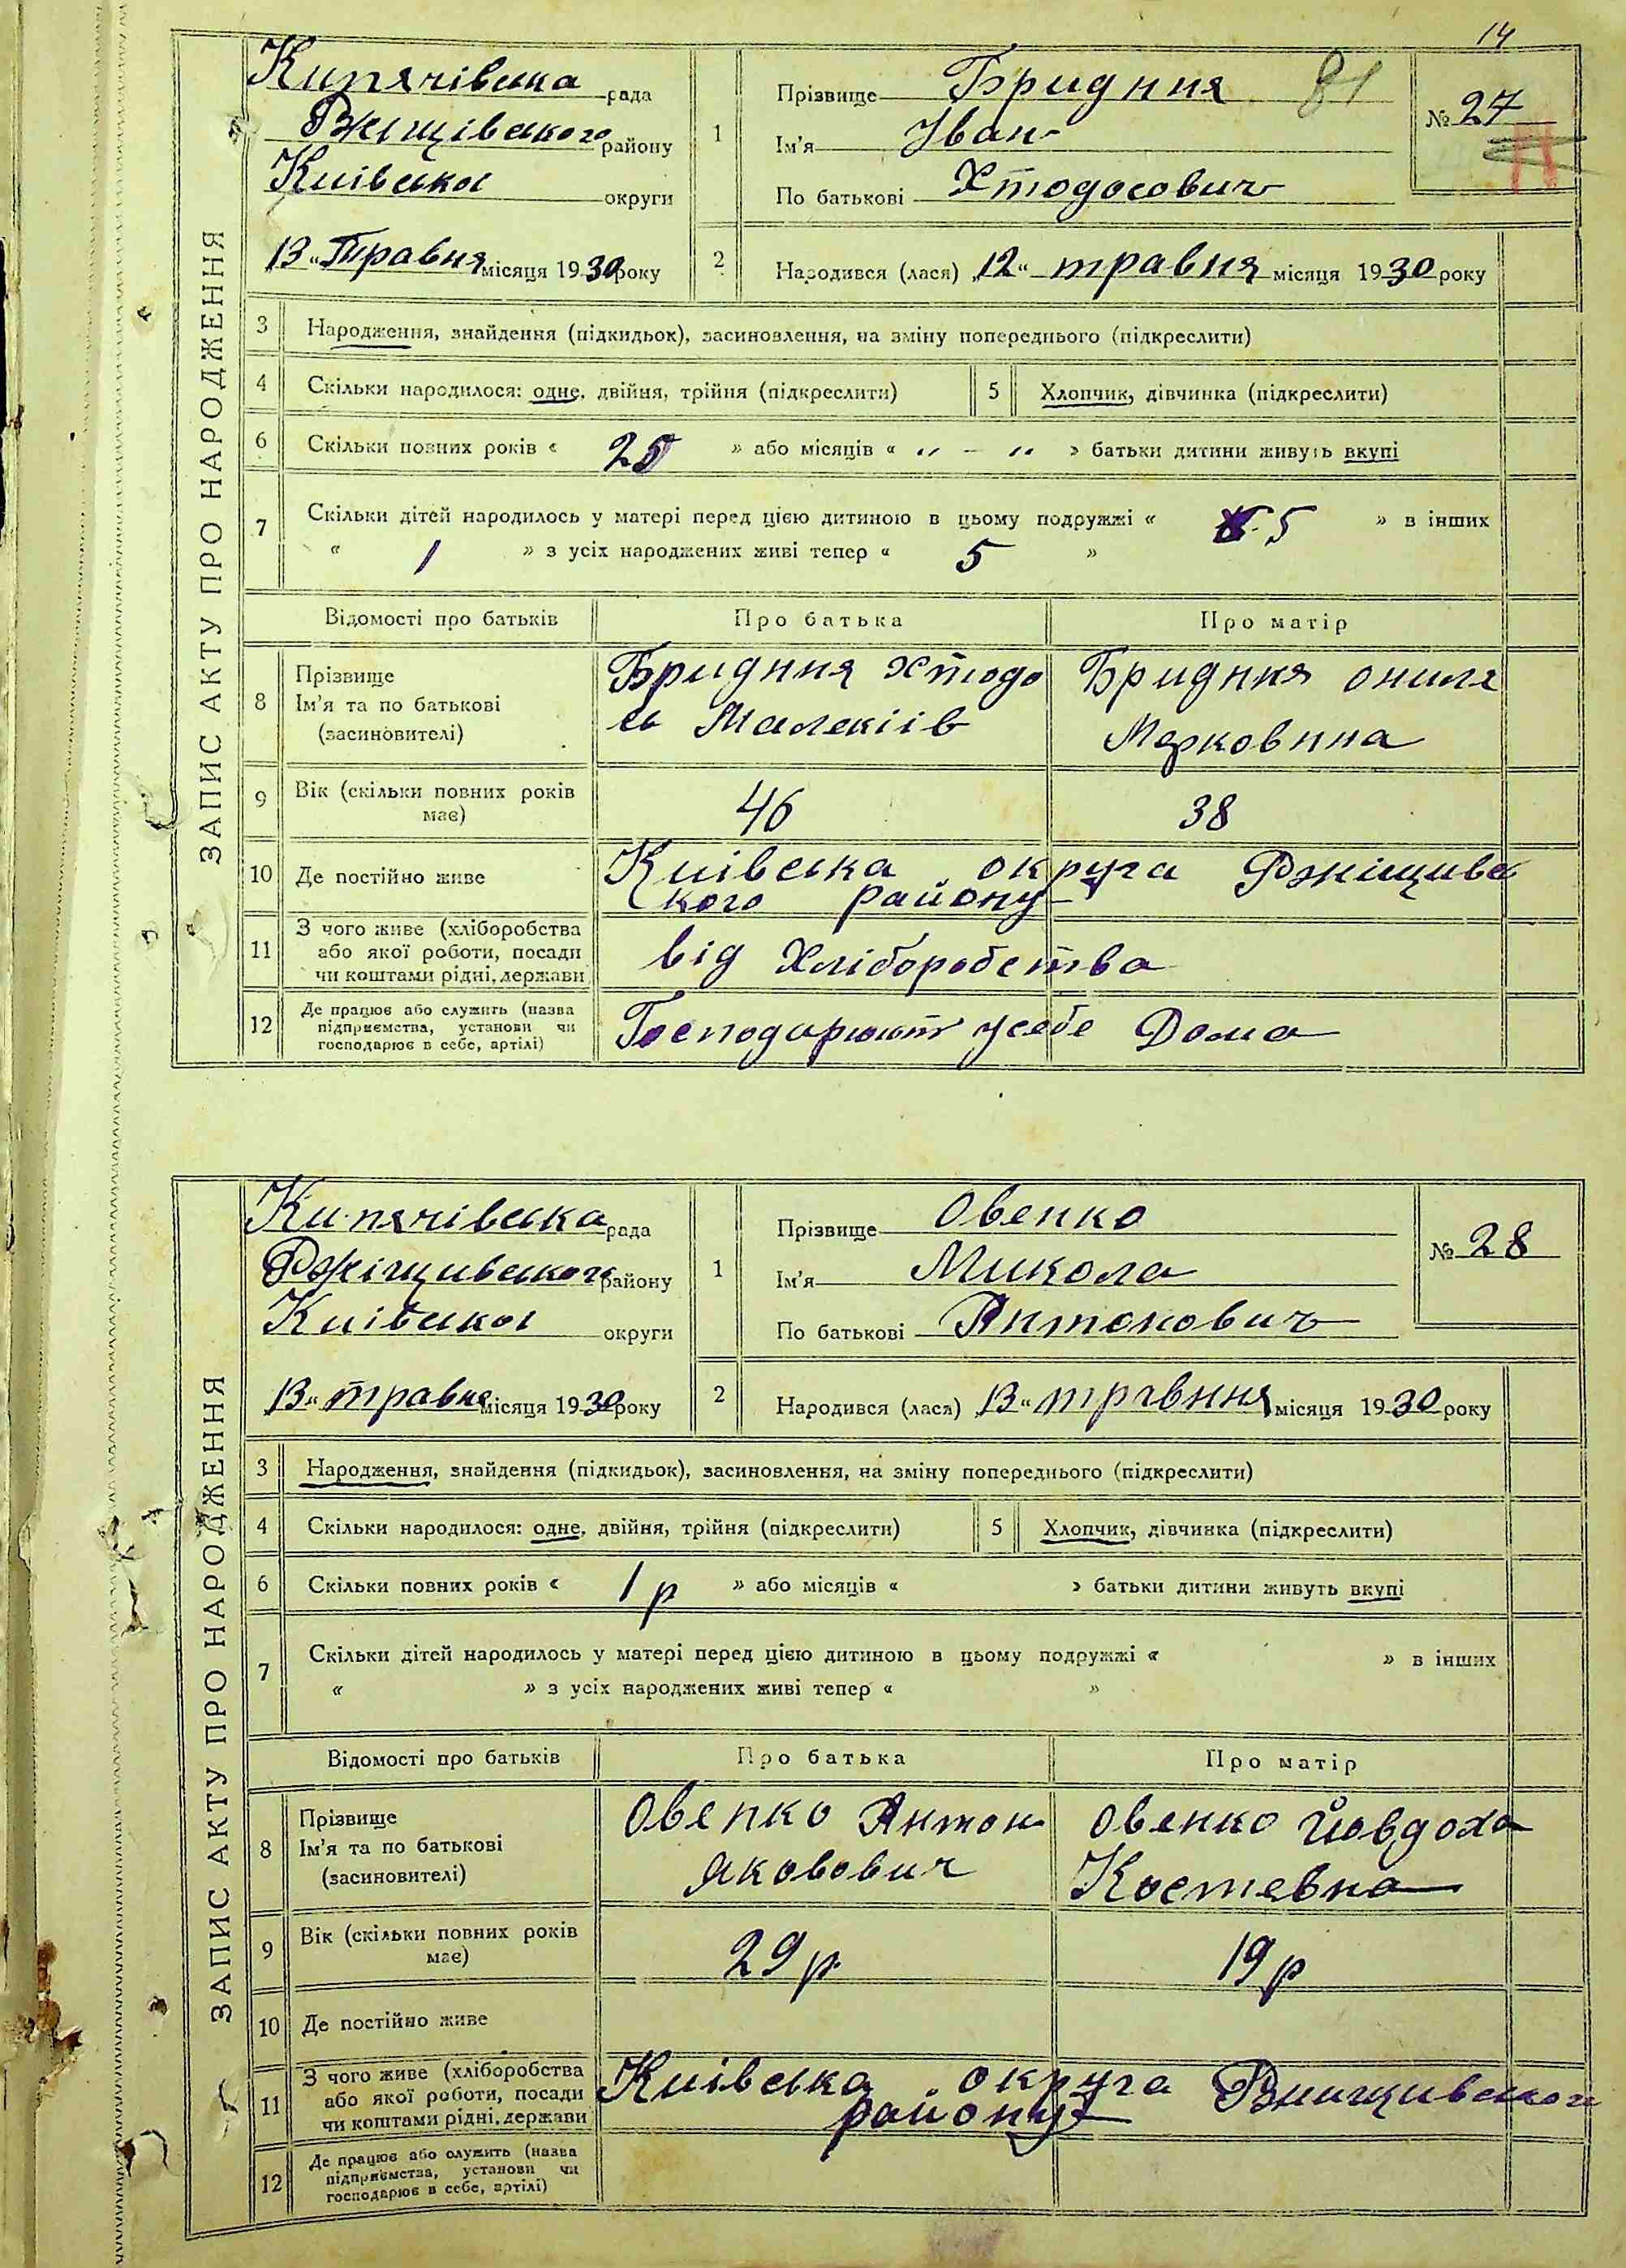 14
ЗАПИС АКТУ ПРО НАРОДЖЕННЯ
Кипячівська рада
Ржищівського району
Київської округи
„13“ Травня місяця 1930 року
1 Прізвище Бридня 81
Ім'я Іван
По батькові Хтодосович
№ 27
2 Народився (лася) „12“ травня місяця 1930 року
3 Народження, знайдення (підкидьок), засиновлення, на зміну попереднього (підкреслити)
4 Скільки народилося: одне, двійня, трійня (підкреслити) 5 Хлопчик, дівчинка (підкреслити)
6 Скільки повних років « » або місяців « „ – „ » батьки дитини живуть вкупі
7 Скільки дітей народилось у матері перед цією дитиною в цьому подружжі « 5 » в інших
« 1 » з усіх народжених живі тепер « 5 »
Відомості про батьків Про батька Про матір
8 Прізвище Ім'я та по батькові (засиновителі) Бридня Хтодо сь Малекіів Бридня ониля Марковина
9 Вік (скільки повних років має) 46 38
10 Де постійно живе Київська округа Ржищивс
кого району
11 З чого живе (хліборобства або якої роботи, посади чи коштами рідні, держави від Хліборобства
12 Де працює або служить (назва підприємства, установи чи господарює в себе, артілі) Господарюют усебе Дома
ЗАПИС АКТУ ПРО НАРОДЖЕННЯ
Кипячівська рада
Ржіщивського району
Київської округи
„13“ травня місяця 1930 року
1 Прізвище Овенко
Ім'я Микола
По батькові Антонович
№ 28
2 Народився (лася) „13“ травння місяця 1930 року
3 Народження, знайдення (підкидьок), засиновлення, на зміну попереднього (підкреслити)
4 Скільки народилося: одне, двійня, трійня (підкреслити) 5 Хлопчик, дівчинка (підкреслити)
6 Скільки повних років « 1 р » або місяців « » батьки дитини живуть вкупі
7 Скільки дітей народилось у матері перед цією дитиною в цьому подружжі « » в інших
« » з усіх народжених живі тепер « »
Відомості про батьків Про батька Про матір
8 Прізвище Ім'я та по батькові (засиновителі) Овенко Антон Яковович Овенко Йовдоха Костевна
9 Вік (скільки повних років має) 29 р 19 р
10 Де постійно живе
11 З чого живе (хліборобства або якої роботи, посади чи коштами рідні, держави Київська округа Ржищивського
району
12 Де працює або служить (назва підприємства, установи чи господарює в себе, артілі)